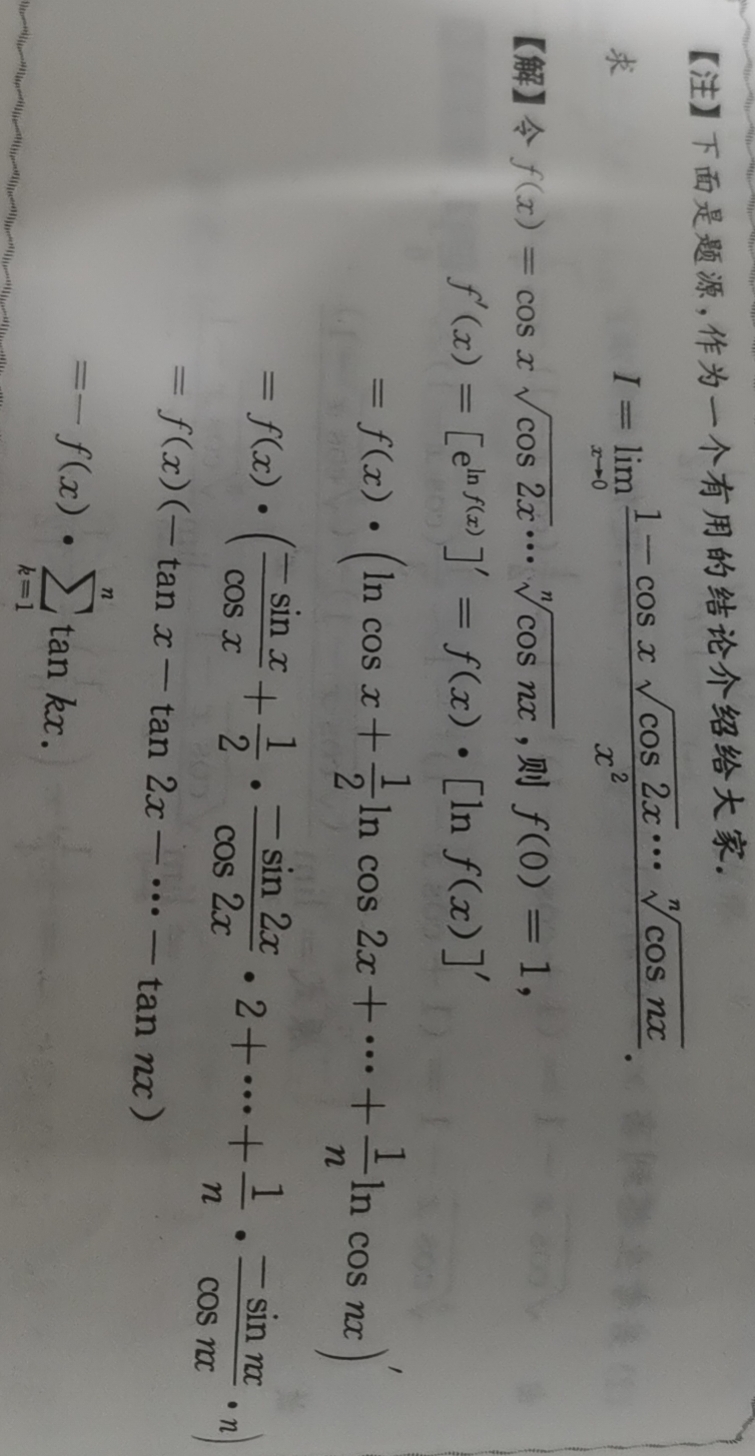 【注】下面是题源,作为一个有用的结论介绍给大家.
求
I = lim_{x→0} \frac{1 - cos x \sqrt{cos 2x} ⋯ \sqrt[n]{cos nx}}{x^2}.
【解】令 f(x) = cos x \sqrt{cos 2x} ⋯ \sqrt[n]{cos nx},则 f(0) = 1,
f′(x) = [e^{ln f(x)}]′ = f(x) · [ln f(x)]′
= f(x) · (ln cos x + \frac{1}{2} ln cos 2x + ⋯ + \frac{1}{n} ln cos nx)′
= f(x) · (\frac{-sin x}{cos x} + \frac{1}{2} · \frac{-sin 2x}{cos 2x} · 2 + ⋯ + \frac{1}{n} · \frac{-sin nx}{cos nx} · n)
= f(x)(-tan x - tan 2x - ⋯ - tan nx)
= -f(x) · \sum_{k=1}^{n} tan kx.